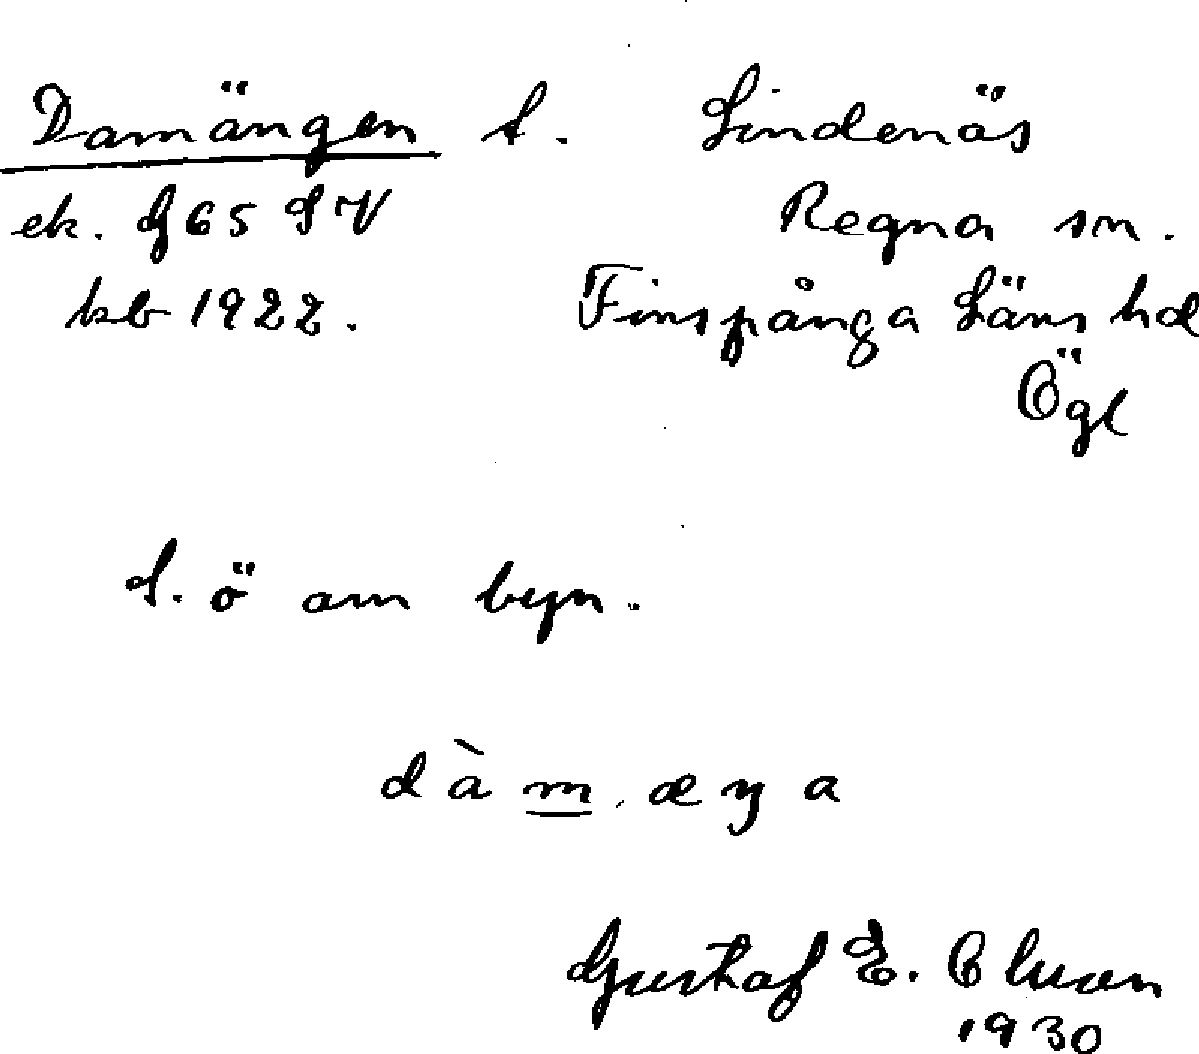 Damängen t. Lindenäs
ek. G 65 SV Regna sn.
kb 1922. Finspånga Läns hd
Ögl
S. ö om byn.
dàm, æŋa
Gustaf E. Olsson
1930